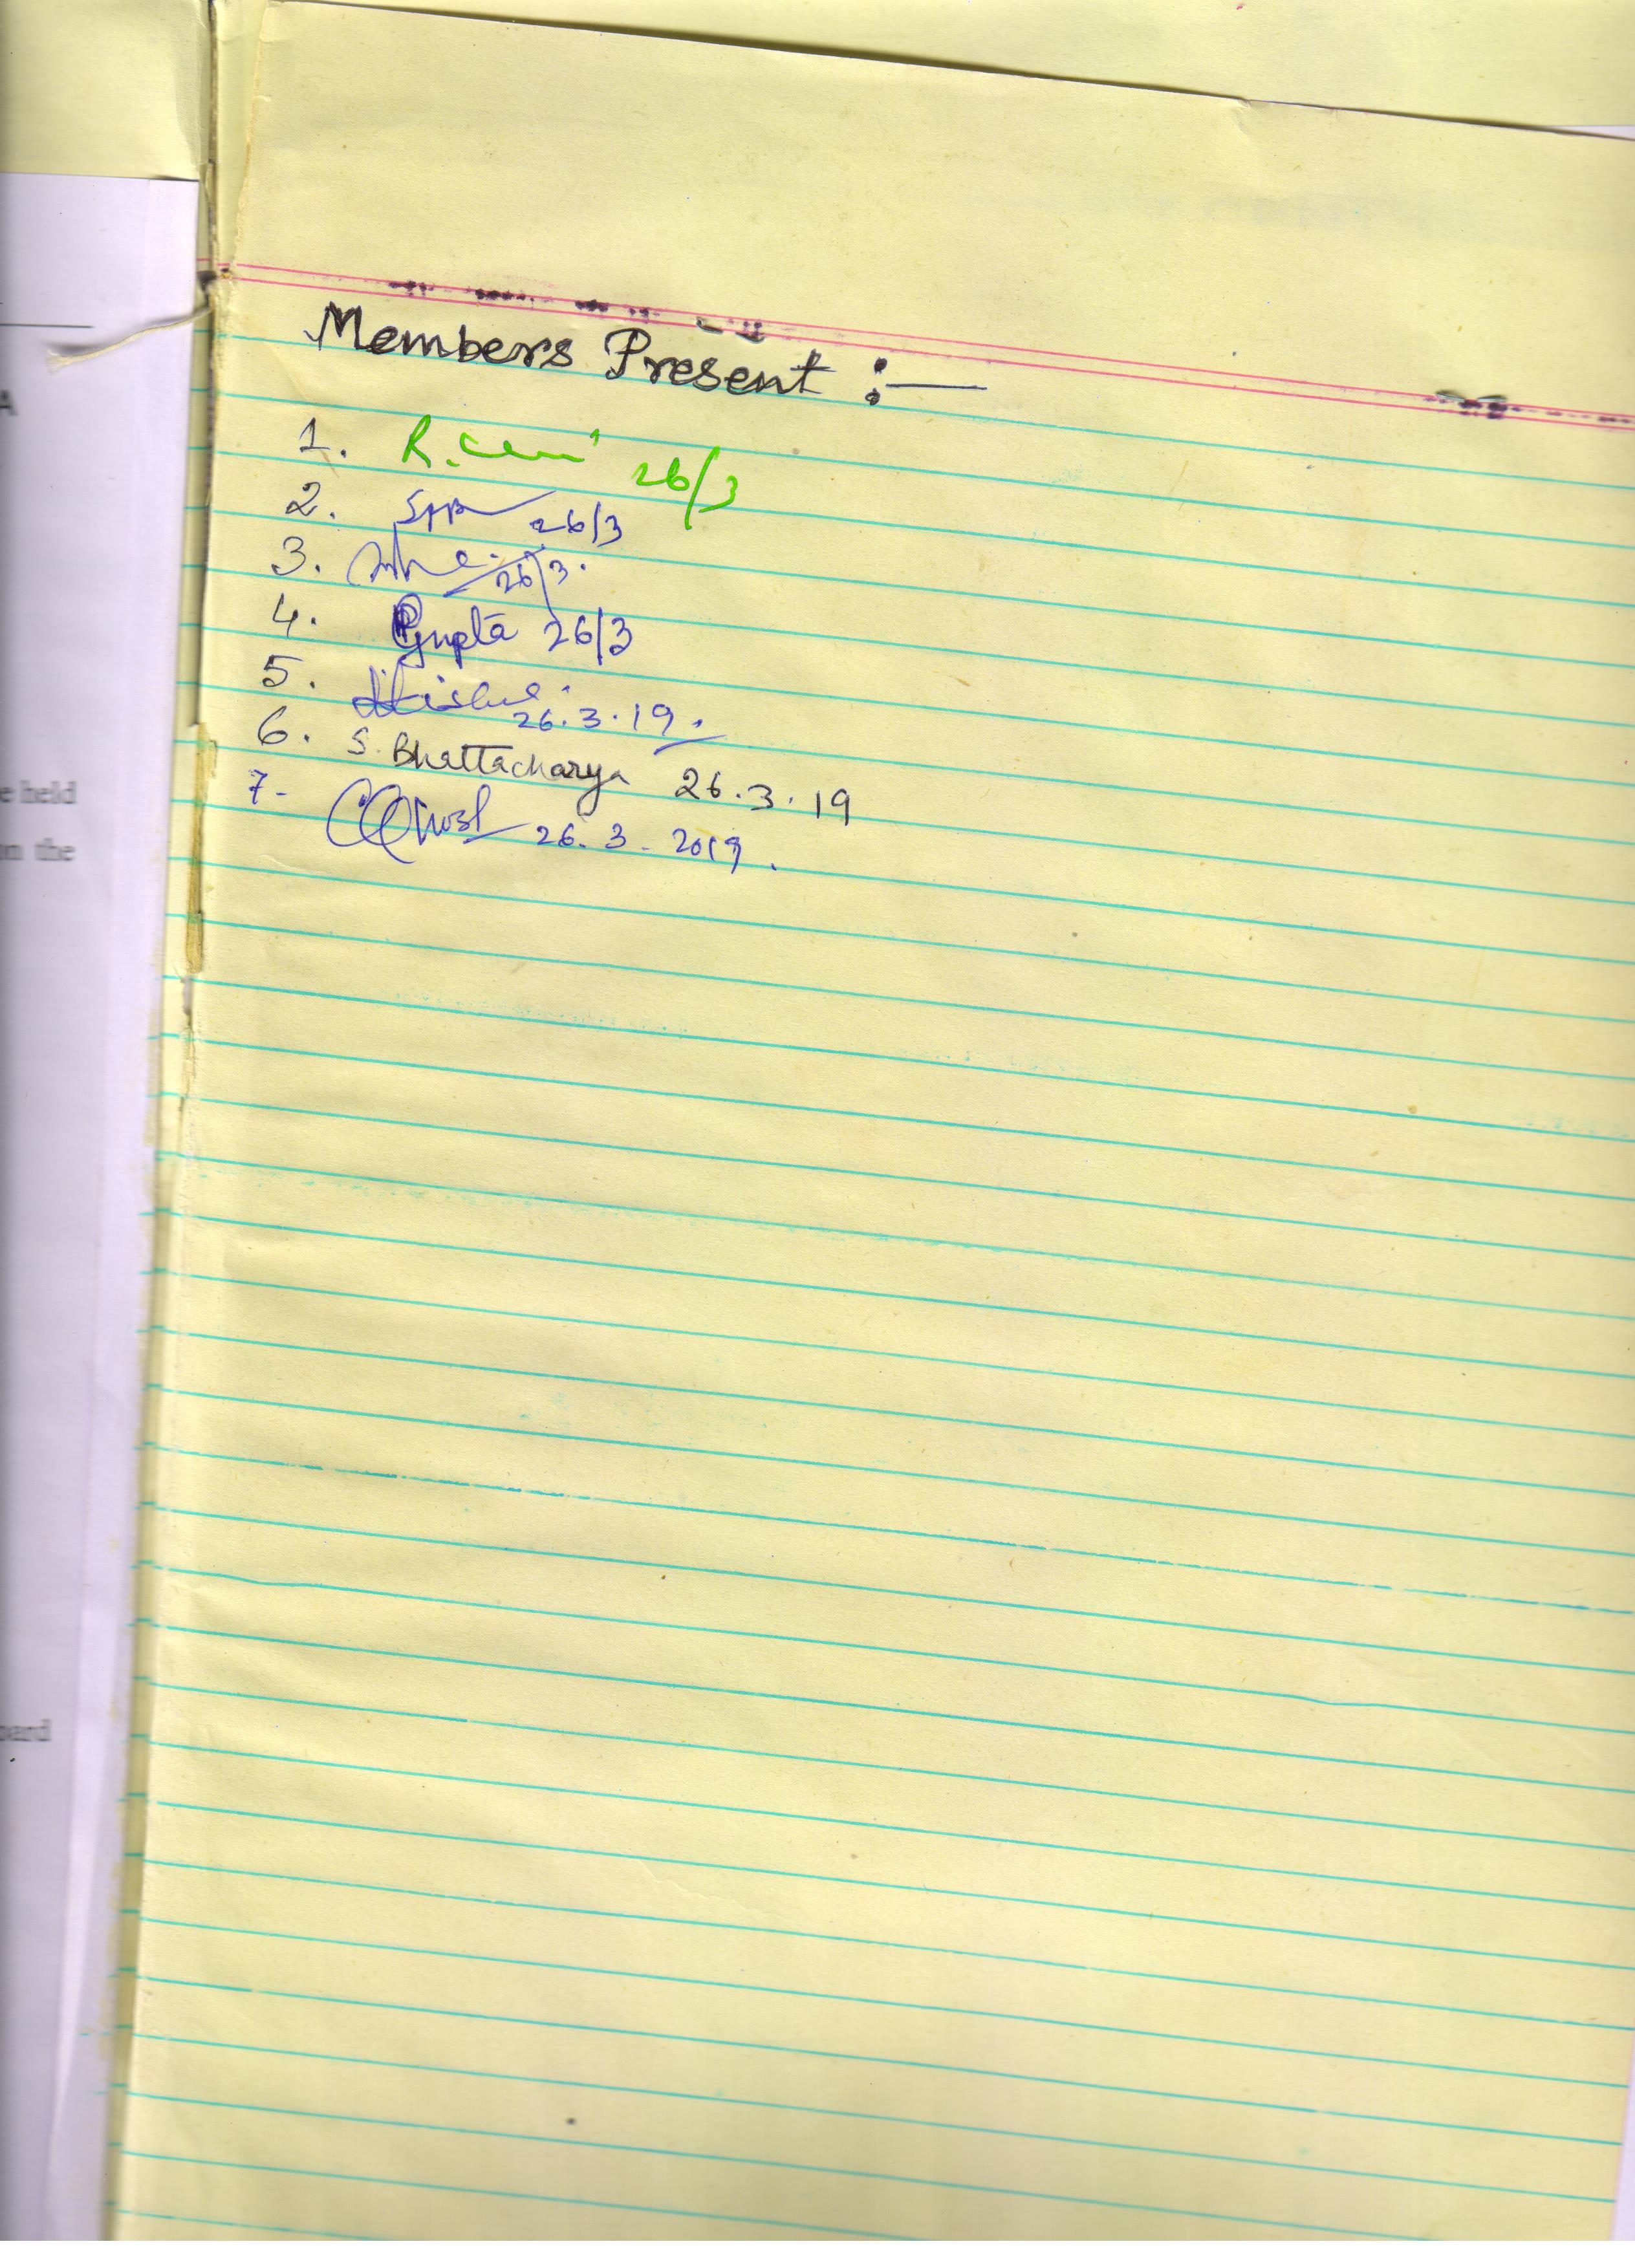 A
e held
on the
oard
Members Present :—
1. R. 26/3
2. 26/3
3. 26/3.
4. Gupta 26/3
5. 26.3.19.
6. S. Bhattacharya 26.3.19
7- 26.3.2019.